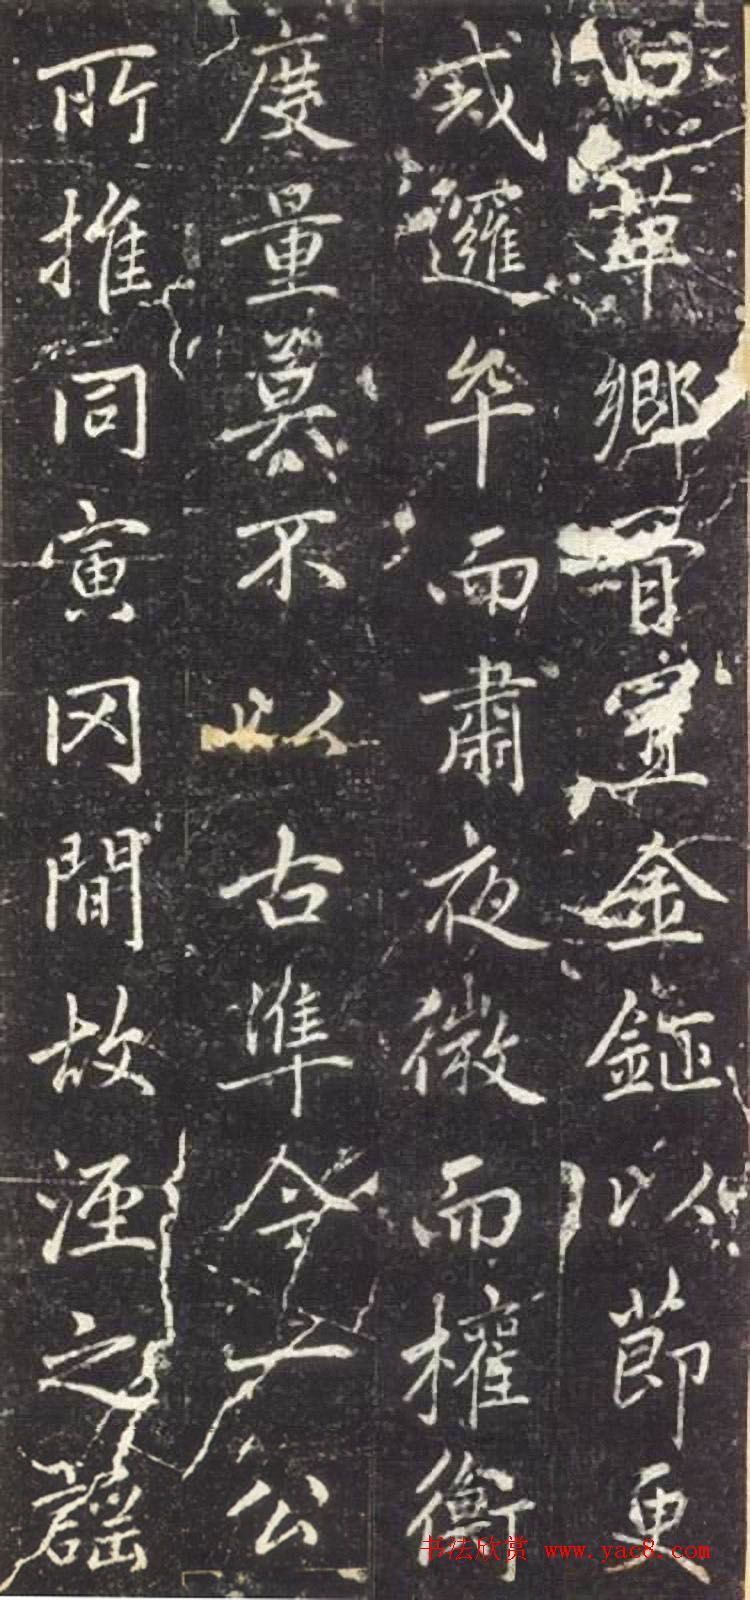 革鄉胥置金鉦以節更
戒邏卒而肅夜微而權衡
度量莫不以古準今一公
所推同寅罔間故涇之謡
书法欣赏 www.yac8.com